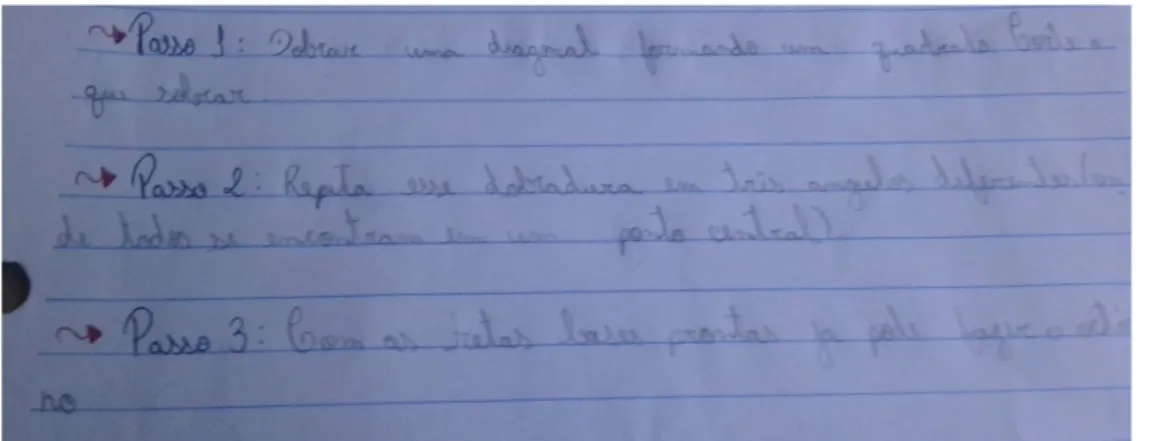 Passo 1: Dobrar uma diagonal formando um quadrado Corte o
que sobrar
Passo 2: Repita esse dobradura em três angulos diferentes (on
de todos se encontram em um ponto central)
Passo 3: Com as retas bases prontas ja pode
no